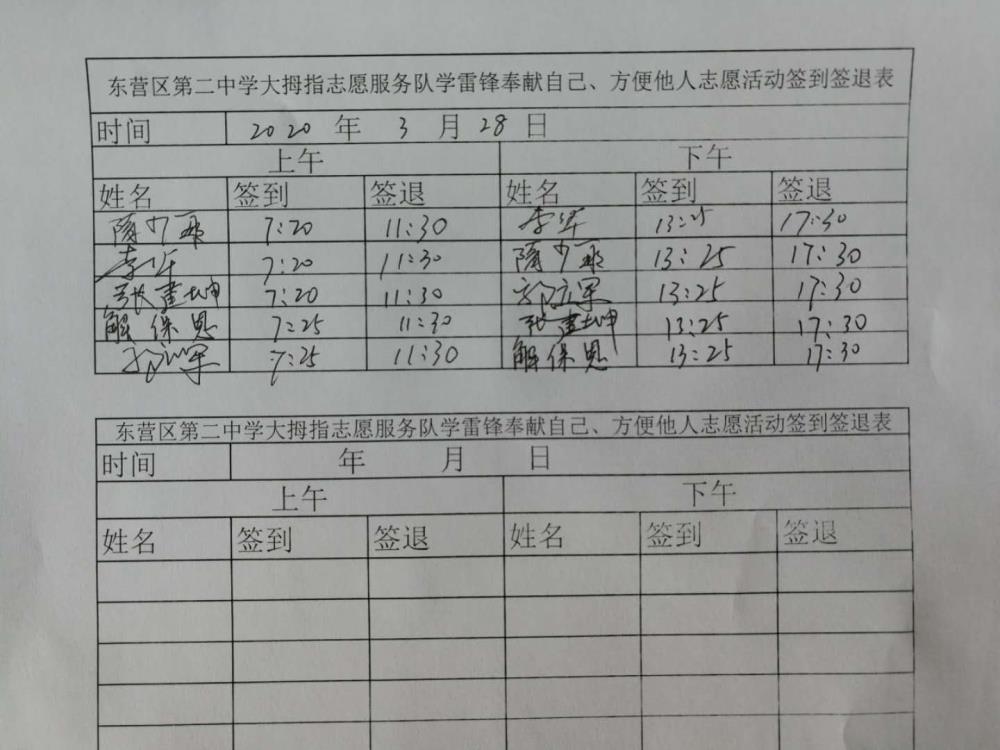 东营区第二中学大拇指志愿服务队学雷锋奉献自己、方便他人志愿活动签到签退表
时间 2020 年 3 月 28 日
上午 下午
姓名 签到 签退 姓名 签到 签退
隋少丽 7:20 11:30 李军 13:25 17:30
李军 7:20 11:30 隋少丽 13:25 17:30
张建坤 7:20 11:30 13:25 17:30
解保恩 7:25 11:30 张建坤 13:25 17:30
7:25 11:30 解保恩 13:25 17:30
东营区第二中学大拇指志愿服务队学雷锋奉献自己、方便他人志愿活动签到签退表
时间 年 月 日
上午 下午
姓名 签到 签退 姓名 签到 签退